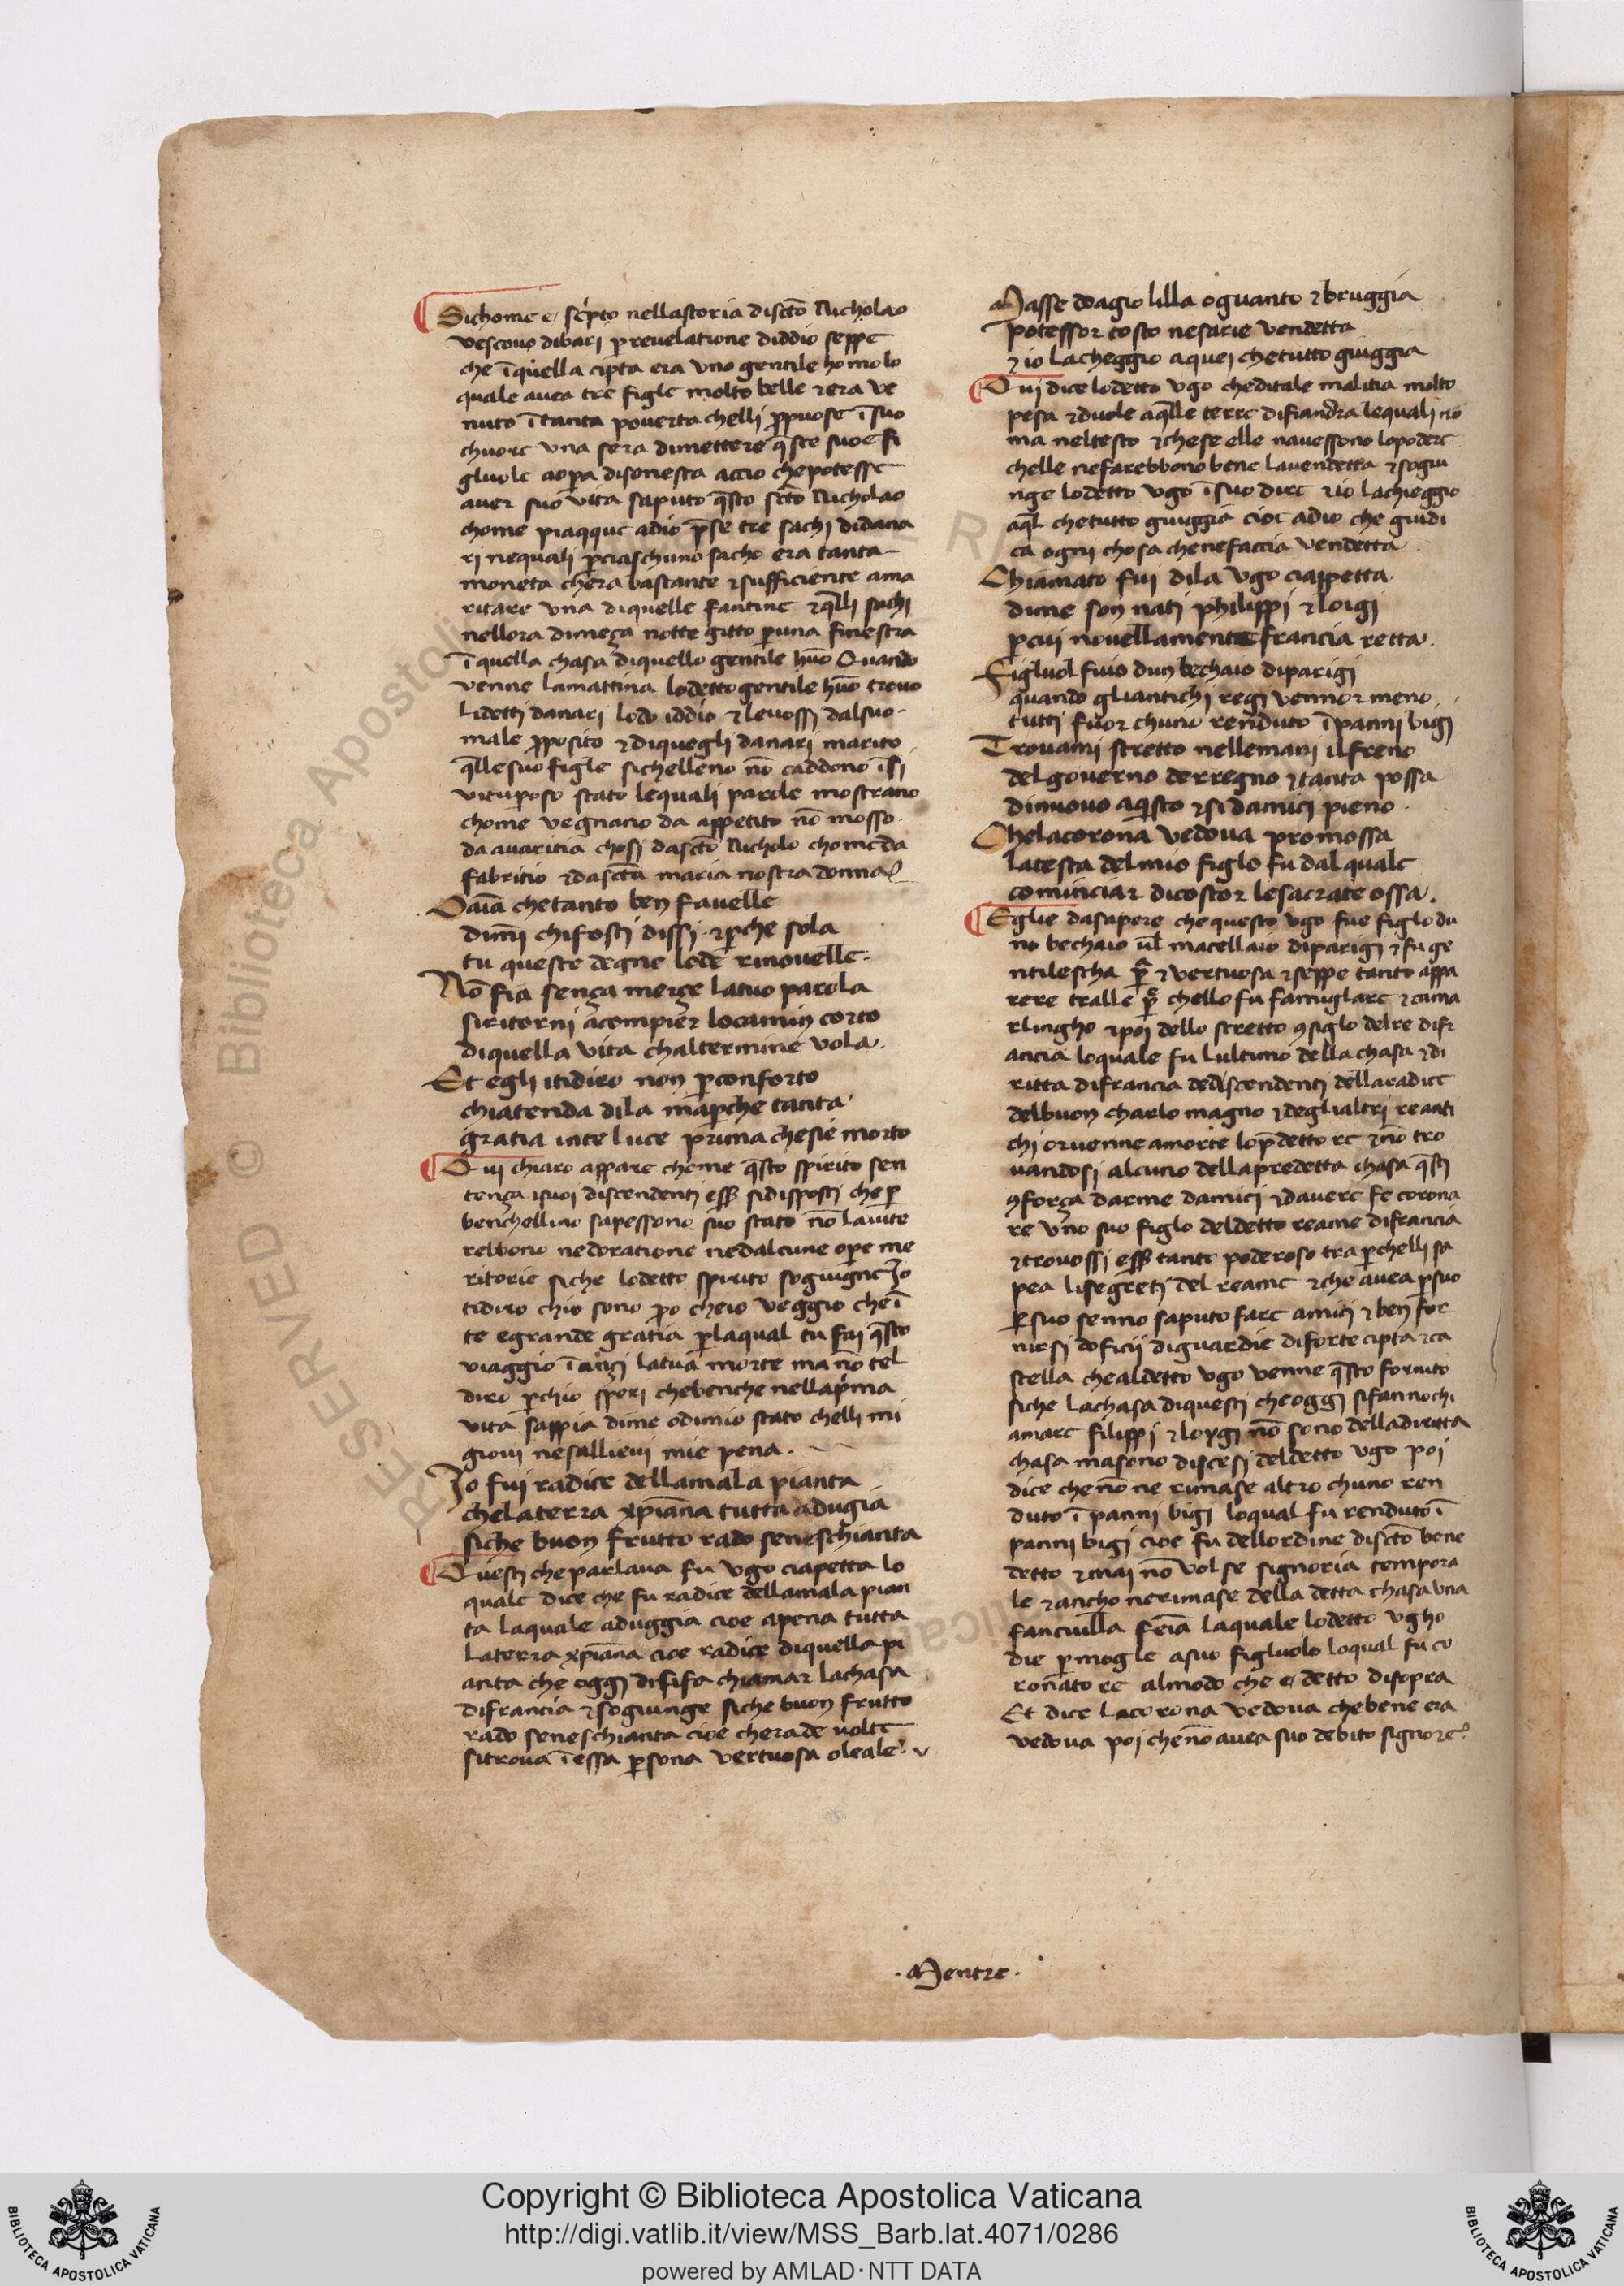 Sichome e scripto nellastoria discto Nicholao
vescovo dibari p revelatione diddio seppe
che ī quella cipta era uno gentile homo lo
quale avea tre figle molto belle ⁊ era ve
nuto ī tanta poverta chelli ppuose ī suo
chuore una sera dimettere qste suoe fi
gluole aopa disonesta accio che potesse
aver suo vita saputo qsto scto Nicholao
chome piaqque adio pse tre sachi didana
ri nequali pciaschuno sacho era tanta
moneta chera bastante ⁊ sufficiente ama
ritare una diquelle fantine ⁊ qlli sachi
nellora dimeça notte gitto p una finestra
ī quella chasa diquello gentile huō Quando
venne lamattina lodetto gentile huō trovo
lidetti danari lodo iddio ⁊ levossi dalsuo
male pposito ⁊ diquegli danari marito
qlle suo figle sichelleno nō caddono ī si
vituposo stato lequali parole mostrano
chome vegnano da appetito nō mosso
da avaritia chosi dascto Nicholo chome da
fabritio ⁊ dascta maria nostra donna
Oaīa chetanto ben favelle
dimī chifosti dissi ⁊ pche sola
tu queste degne lode rinovelle
Nō fia sença merçe latuo parola
siritorni acompier locamin corto
diquella vita chaltermine vola
Et egli itidiro non pconforto
chiatenda dila ma pche tanta
gratia inte luce prima chesie morto
Qui chiaro appare chome qsto spirito sen
tença isuoi discendenti essē sidisposti che p
benchellino sapessono suo stato nō laiute
rebbono nedoratione nedalcune ope me
ritorie siche lodetto spirito sogiugne Jo
tidiro chio sono po cheio veggio che ī
te e grande gratia plaqual tu fai qsto
viaggio ī ançi latua morte ma nō tel
diro pchio speri chebenche nella prima
vita sappia dime odimio stato chelli mi
giovi nesallievi mie pena.
Jo fui radice dellamala pianta
chelaterra xpīana tutta adugia
siche buon frutto rado seneschianta
Questi che parlava fu ugo ciapetta lo
quale dice che fu radice dellamala pian
ta laquale aduggia cioe apena tutta
laterra xpīana cioe radice diquella pi
anta che oggi disifa chiamar lachasa
difrancia ⁊ sogiunge siche buon frutto
rado seneschianta cioe cherade volte
sitrova ī essa psona vertuosa oleale.
Masse doagio lilla oguanto ⁊ bruggia
potessor tosto nesarie vendetta
⁊ io lacheggio aquei chetutto giuggia
Qui dice lodetto ugo cheditale malitia molto
pesa ⁊ duole aqlle terre difiandra lequali no
ma neltesto ⁊ chese elle navessono lopodere
chelle nefarebbono bene lavendetta ⁊ sogiu
nge lodetto ugo ī suo dire ⁊ io lachieggio
aql chetutto giuggia cioe adio che giudi
ca ogni chosa chenefaccia vendetta
Chiamato fui dila ugo ciappetta
dime son nati philippi ⁊ loigi
pcui novellamente francia retta.
Figluol fuio dun bechaio diparigi
quando gliantichi regi vennor meno
tutti fuor chuno renduto ī panni bigi
Trovami stretto nellemani ilfreno
delgoverno derregno ⁊ tanta possa
dinuovo aqisto ⁊ si damici pieno
Chelacorona vedova promossa
latesta delmio figlo fu dal quale
cominciar dicostor lesacrate ossa.
Eglie dasapere che questo ugo fue figlo du
no bechaio ul macellaio diparigi ⁊ fu ge
ntilescha pa ⁊ vertuosa ⁊ seppe tanto appa
rere tralle pe chello fu famiglare ⁊ cama
rlingho ⁊ poi dello stretto 9siglo delre difr
ancia loquale fu lultimo della chasa ⁊ di
ritta difrancia dediscendenti dellaradice
delbuon charlo magno ⁊ deglialtri re anti
chi or venne amorte lopdetto re ⁊ nō tro
vandosi alcuno dellapredetta chasa qsti
9força darme damici ⁊ davere fe corona
re uno suo figlo deldetto reame difrancia
⁊ trovossi essē tanto poderoso tra pchelli sa
pea lisegreti del reame ⁊ che avea psuo
psuo senno saputo fare amici ⁊ ben for
nirsi doficii diguardie diforte cipta ⁊ ca
stella chealdetto ugo venne qsto fornito
siche lachasa diquesti cheoggi sifannochi
amare filippi ⁊ loygi nō sono delladiritta
chasa masono discesi deldetto ugo poi
dice chenōne rimase altro chuno ren
duto ī panni bigi loqual fu renduto ī
panni bigi cioe fu dellordine discto bene
detto ⁊ mai nō volse signoria tempora
le ⁊ ancho nerimase della detta chasa una
fanciulla feīa laquale lodetto ugho
die p mogle asuo figluolo loqual fu co
ronato re almodo che e detto disopra
Et dice lacorona vedova chebene era
vedova poi chenō avea suo debito signore
· Mentre ·
RESERVED © Biblioteca Apostolica Vaticana
Copyright © Biblioteca Apostolica Vaticana
http://digi.vatlib.it/view/MSS_Barb.lat.4071/0286
powered by AMLAD·NTT DATA
BIBLIOTECA APOSTOLICA VATICANA
BIBLIOTECA APOSTOLICA VATICANA